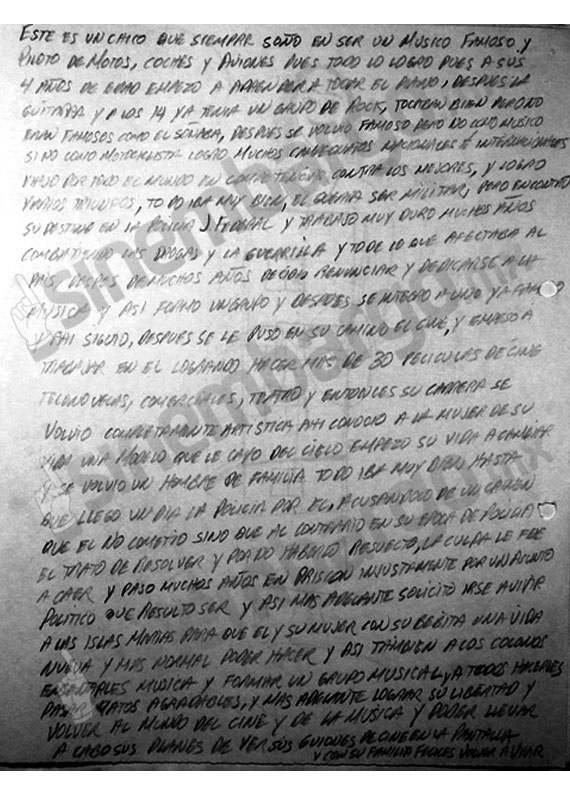 ESTE ES UN CHICO QUE SIEMPAR SOÑO EN SER UN MUSICO FAMOSO Y
PILOTO DE MOTOS, COCHES Y AVIONES PUES TODO LO LOGRO PUES A SUS
4 AÑOS DE EDAD EMPEZO A APRENDER A TOCAR EL PIANO, DESPUES LA
GUITARRA Y A LOS 14 YA TENIA UN GRUPO DE ROCK, TOCABAN BIEN PERO NO
ERAN FAMOSOS COMO EL SOÑABA, DESPUES SE VOLVIO FAMOSO PERO NO COMO MUSICO
SI NO COMO MOTOCICLISTA LOGRO MUCHOS CAMPEONATOS NACIONALES E INTERNACIONALES
VIAJO POR TODO EL MUNDO EN COMPETENCIAS CONTRA LOS MEJORES, Y LOGRO
VARIOS TRIUNFOS, TODO IBA MUY BIEN, EL QUERIA SER MILITAR, PERO ENCONTRO
SU DESTINO EN LA POLICIA J. FEDERAL Y TRABAJO MUY DURO MUCHOS AÑOS
COMBATIENDO LAS DROGAS Y LA GUERRILLA Y TODO LO QUE AFECTABA AL
PAIS, DESPUES DE MUCHOS AÑOS DECIDIO RENUNCIAR Y DEDICARSE A LA
MUSICA Y ASI FORMO UN GRUPO Y DESPUES SE INTEGRO A UNO YA
Y AHI SIGUIO, DESPUES SE LE PUSO EN SU CAMINO EL CINE, Y EMPESO A
TRABAJAR EN EL LOGRANDO HACER MAS DE 30 PELICULAS DE CINE
TELENOVELAS, COMERCIALES, TEATRO Y ENTONCES SU CARRERA SE
VOLVIO COMPLETAMENTE ARTISTICA AHI CONOCIO A LA MUJER DE SU
VIDA UNA MODELO QUE LE CAYO DEL CIELO EMPEZO SU VIDA A CAMBIAR
Y SE VOLVIO UN HOMBRE DE FAMILIA TODO IBA MUY BIEN HASTA
QUE LLEGO UN DIA LA POLICIA POR EL, ACUSANDOLO DE UN CRIMEN
QUE EL NO COMETIO SINO QUE AL CONTRARIO EN SU EPOCA DE POLICIA
EL TRATO DE RESOLVER Y HABERLO RESUELTO, LA CULPA LE FUE
A CAER Y PASO MUCHOS AÑOS EN PRISION INJUSTAMENTE POR UN ASUNTO
POLITICO QUE RESULTO SER Y ASI MAS ADELANTE SOLICITO IRSE A VIVIR
A LAS ISLAS MARIAS PARA QUE EL Y SU MUJER CON SU BEBITA UNA VIDA
NUEVA Y MAS NORMAL PODER HACER Y ASI TAMBIEN A LOS COLONOS
ENSEÑARLES MUSICA Y FORMAR UN GRUPO MUSICAL, Y A TODOS HACERLES
PASAR RATOS AGRADABLES, Y MAS ADELANTE LOGRAR SU LIBERTAD Y
VOLVER AL MUNDO DEL CINE Y DE LA MUSICA Y PODER LLEVAR
A CABO SUS PLANES DE VER SUS GUIONES DE CINE EN LA PANTALLA
Y CON SU FAMILIA FELICES VOLVER A VIVIR
sinembargo.mx